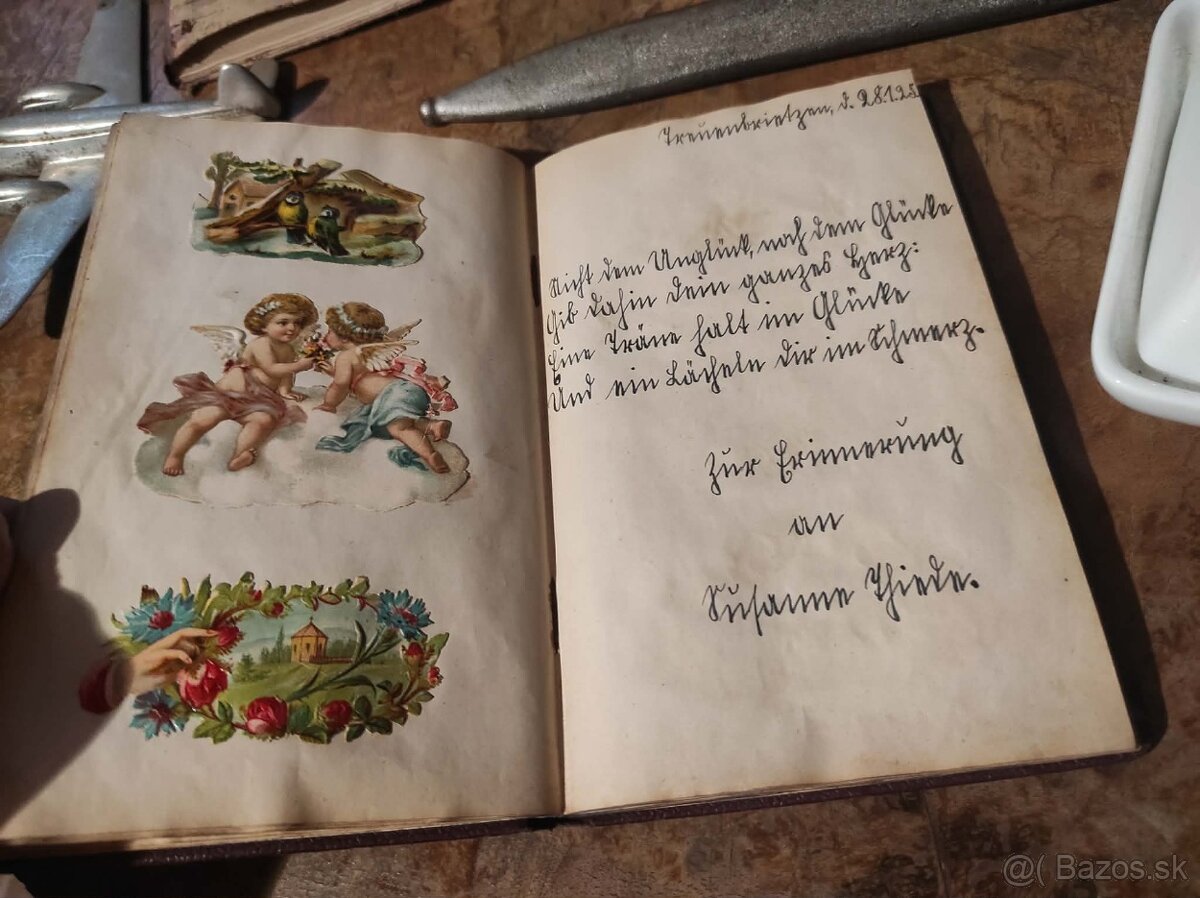 Treuenbrietzen, d. 28.1.25.
Nicht dem Unglück, noch dem Glücke
Gib dahin dein ganzes Herz:
Eine Träne halt im Glücke
Und ein Lächeln dir im Schmerz.
Zur Erinnerung
an
Susanne Thiede.
@( Bazos.sk